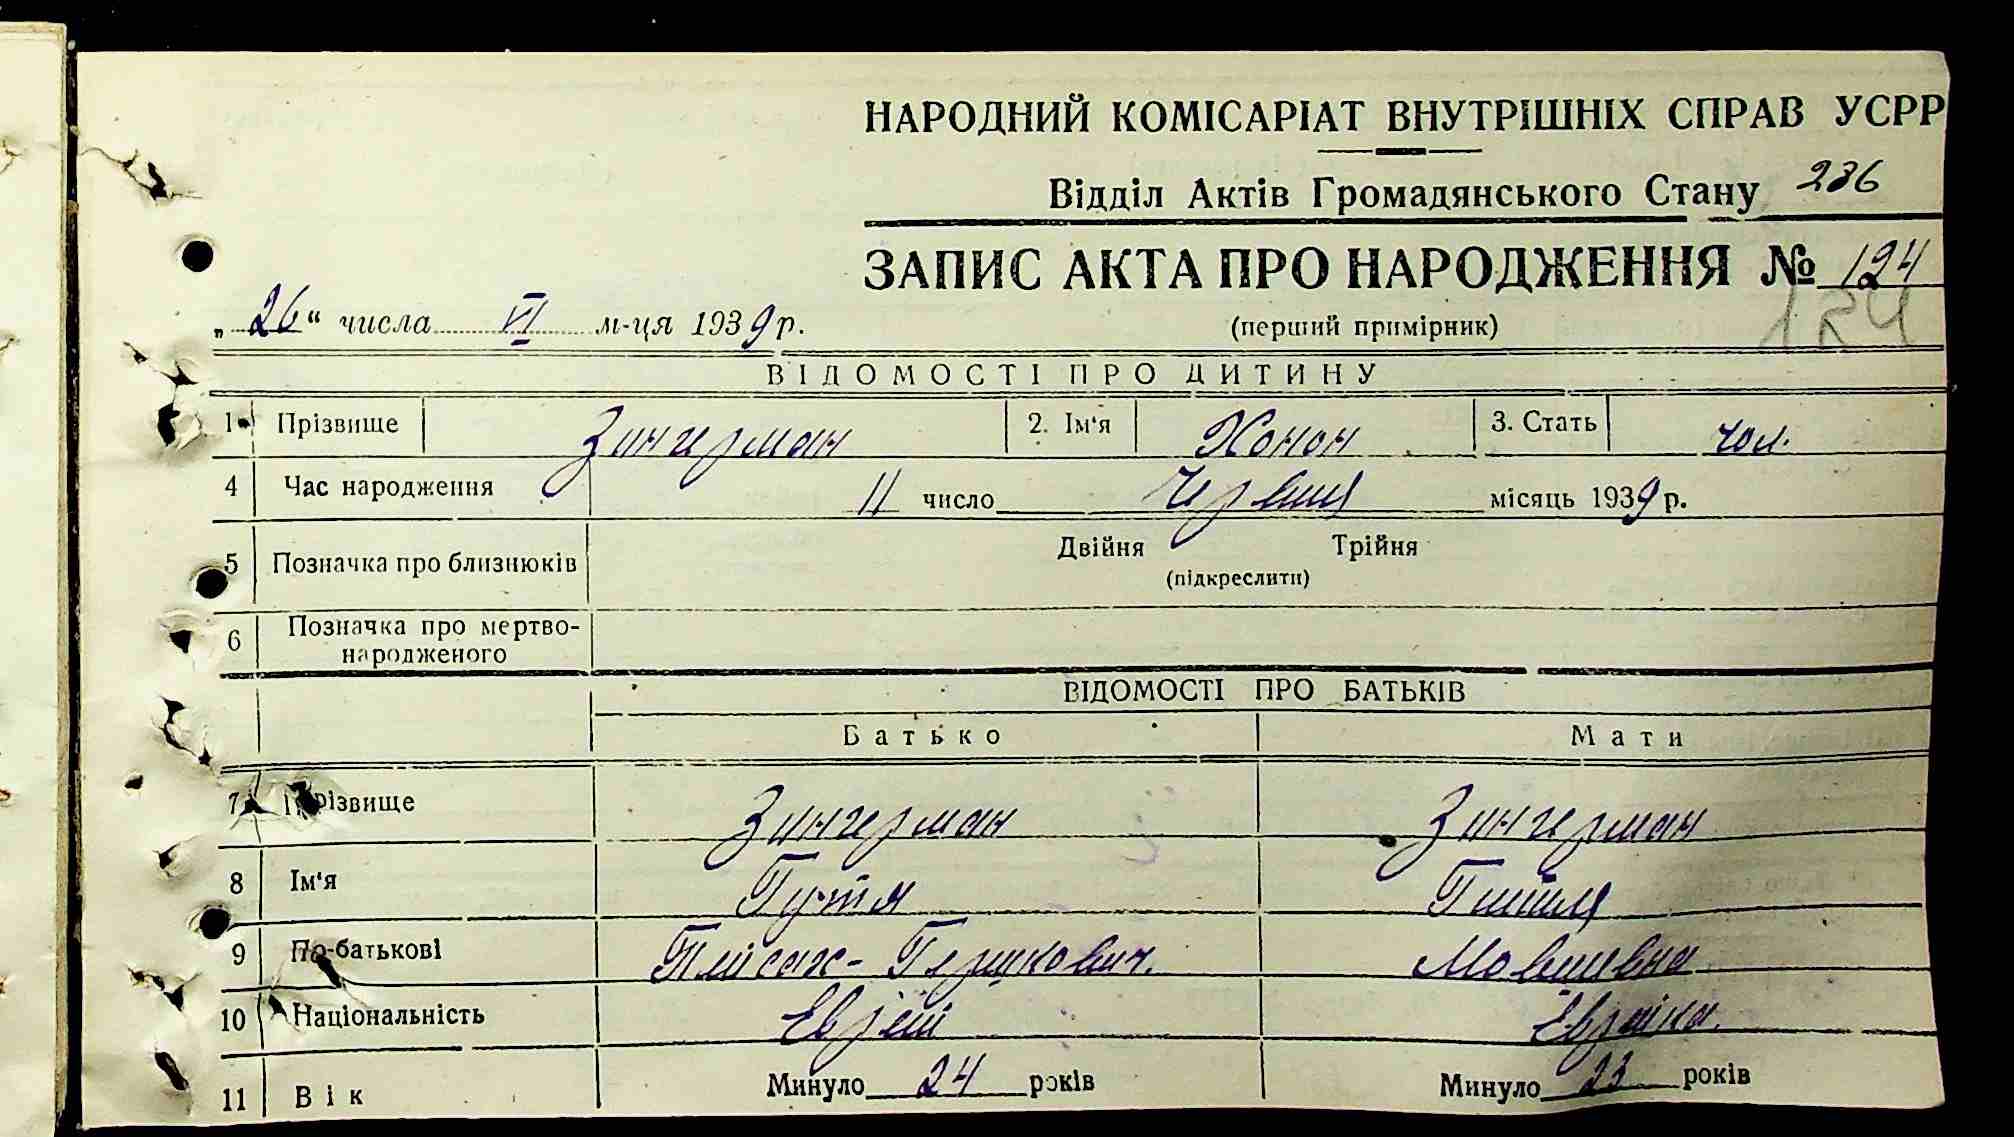 НАРОДНИЙ КОМІСАРІАТ ВНУТРІШНІХ СПРАВ УСРР
Відділ Актів Громадянського Стану 236
ЗАПИС АКТА ПРО НАРОДЖЕННЯ № 124
„26“ числа VI м-ця 1939 р. (перший примірник) 124
ВІДОМОСТІ ПРО ДИТИНУ
1 Прізвище Зингерман 2. Ім'я Хонон 3. Стать чол.
4 Час народження 11 число Червня місяць 1939 р.
5 Позначка про близнюків Двійня Трійня
(підкреслити)
6 Позначка про мертво-
народженого
ВІДОМОСТІ ПРО БАТЬКІВ
Батько Мати
7 Прізвище Зингерман Зингерман
8 Ім'я
9 По-батькові Гершкович Мовшивна
10 Національність Еврей Евройка
11 Вік Минуло 24 років Минуло 23 років